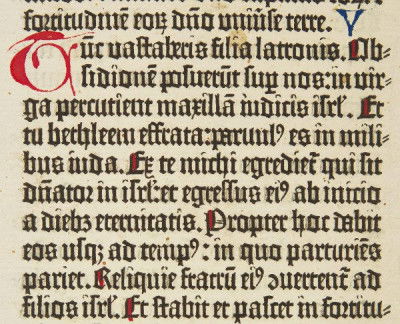 fortitudinē eoꝝ dño uniũse terre. V
Nūc vastaberis filia latronis. Ob-
sidionē posuerũt sup nos: in vir-
ga percutient maxillã iudicis isrl̃. Et
tu bethleem effrata: paruulꝰ es in mili-
bus iuda. Ex te michi egrediet̃ qui sit
dñator in isrl̃: et egressus eiꝰ ab inicio
a diebꝫ eternitatis. Propter hoc dabit
eos usqꝫ ad tempꝰ: in quo parturiēs
pariet. Reliquie fratrũ eiꝰ ꝯuertent̃ ad
filios isrl̃. Et stabit et pascet in fortitu-